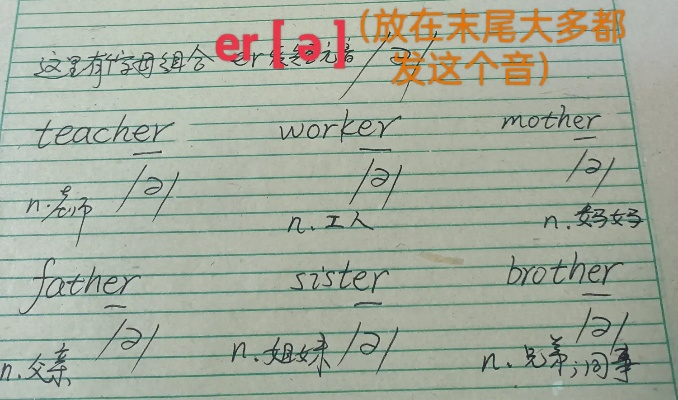 er [ə] (放在末尾大多都
发这个音)
这里有个字母组合 er 发 元音 /ə/
teacher worker mother
/ə/ /ə/ /ə/
n.老师 n.工人 n.妈妈
father sister brother
/ə/ /ə/ /ə/
n.父亲 n.姐妹 n.兄弟;同事